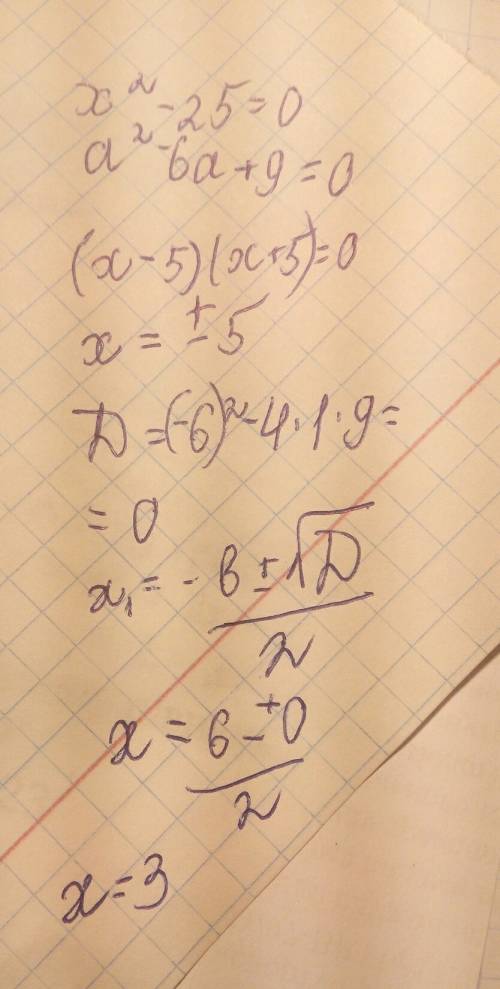 x² - 25 = 0
a² - 6a + 9 = 0
(x - 5)(x + 5) = 0
x = ± 5
D = (-6)² - 4 · 1 · 9 =
= 0
x₁ = - b ± √D / 2
x = 6 ± 0 / 2
x = 3